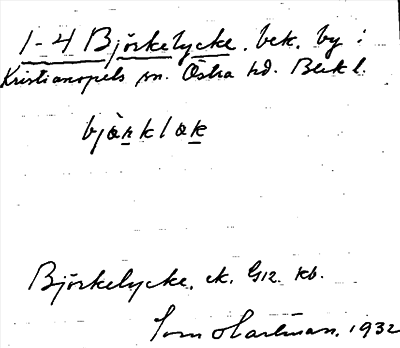 1-4 Björkelycke. bek. by i
Kristianopels sn. Östra hd. Blek l.
bjàrklak
Björkelycke, ek. G12. kb.
Hartman, 1932